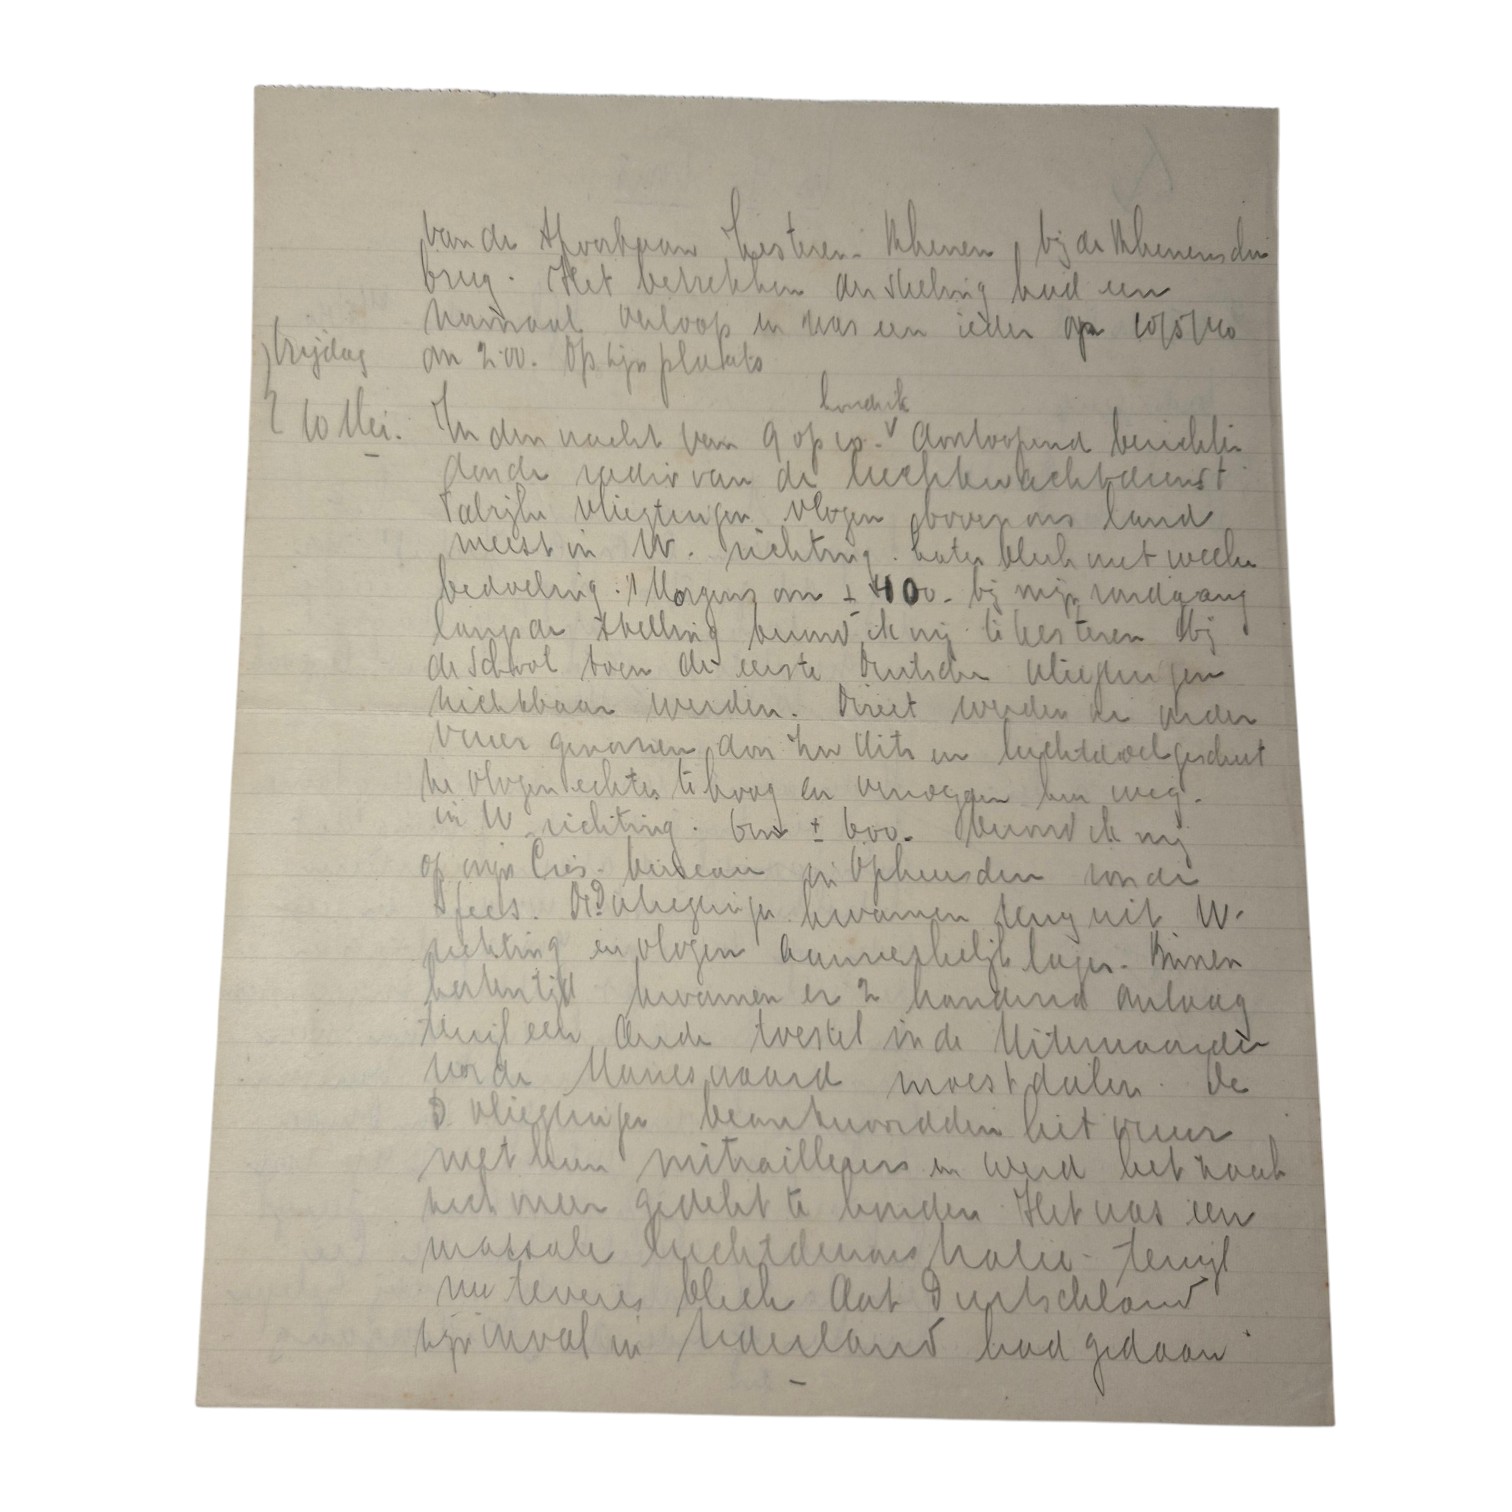 van de spoorbaan Kesteren - Rhenen, bij de Rhenensche
brug. Het betrekken der stelling had een
normaal verloop en was een ieder op 10/5/40
om 2.00. Op zijn plaats
Vrijdag
10 Mei.
In den nacht van 9 op 10. Aanloopend berichten
door de radio van de luchtwachtdienst
Talrijke vliegtuigen vlogen boven ons land
meest in W. richting. Later bleek met welke
bedoeling. 's Morgens om ± 400. bij mijn rondgang
langs de stelling bevond ik mij te Kesteren bij
de School toen de eerste Duitsche vliegtuigen
zichtbaar werden. Direct werden ze onder
vuur genomen door en luchtdoelgeschut
ze vlogen echter te hoog en verdwenen weg.
in W richting. Om ± 600. bevond ik mij
op mijn bureau in Opheusden
De D vliegtuigen kwamen terug uit W.
richting en vlogen aanmerkelijk lager. Binnen
korten tijd kwamen er 2 brandend omlaag
terwijl een derde toestel in de Uiterwaarden
van de Marswaard moest dalen. De
D vliegtuigen beantwoordden het vuur
met hun mitrailleurs en werd het zaak
zich meer gedekt te houden. Het was een
massale luchtdemonstratie - terwijl
nu tevens bleek dat Duitschland
zijn inval in Nederland had gedaan